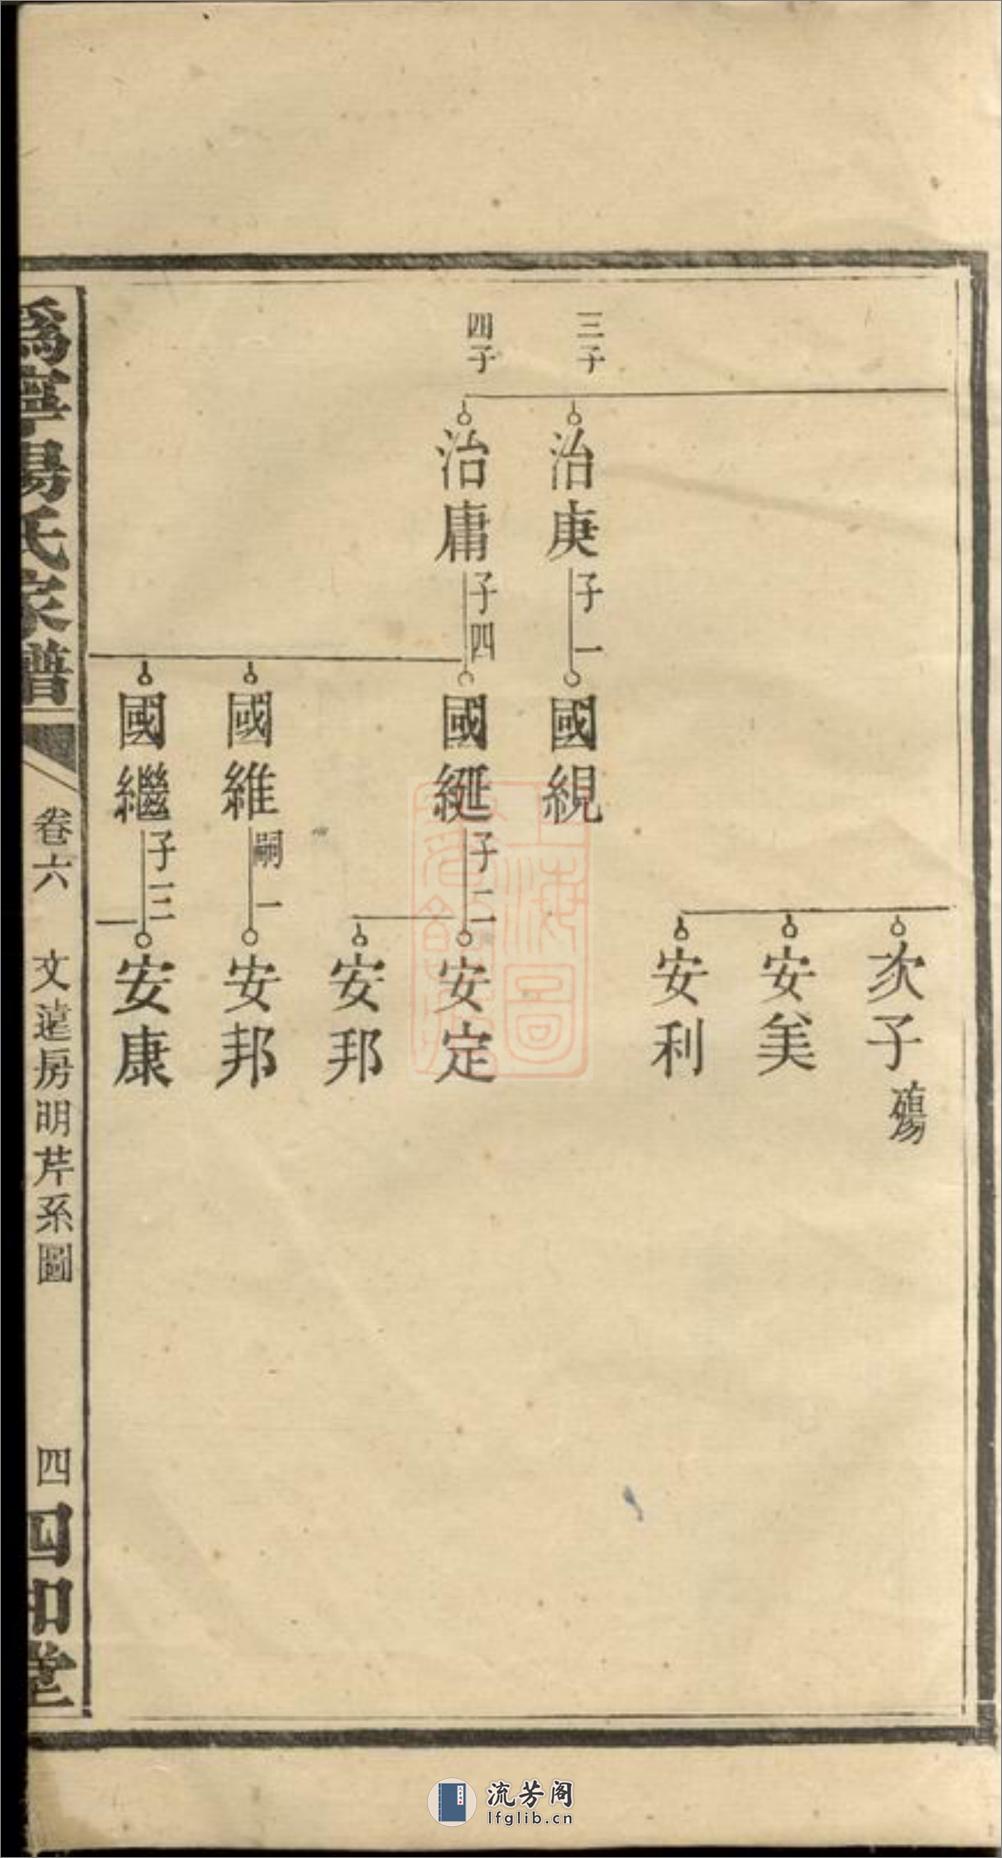 三子
治庚
子一
國䋨
四子
治庸
子四
國綖
子二
國維
嗣一
國繼
子三
次子
殤
安美
安利
安定
安邦
安邦
安康
溈寧易氏家譜
卷六
文蓮房明芹系圖
四
四和堂
上海圖
流芳阁
lfglib.cn